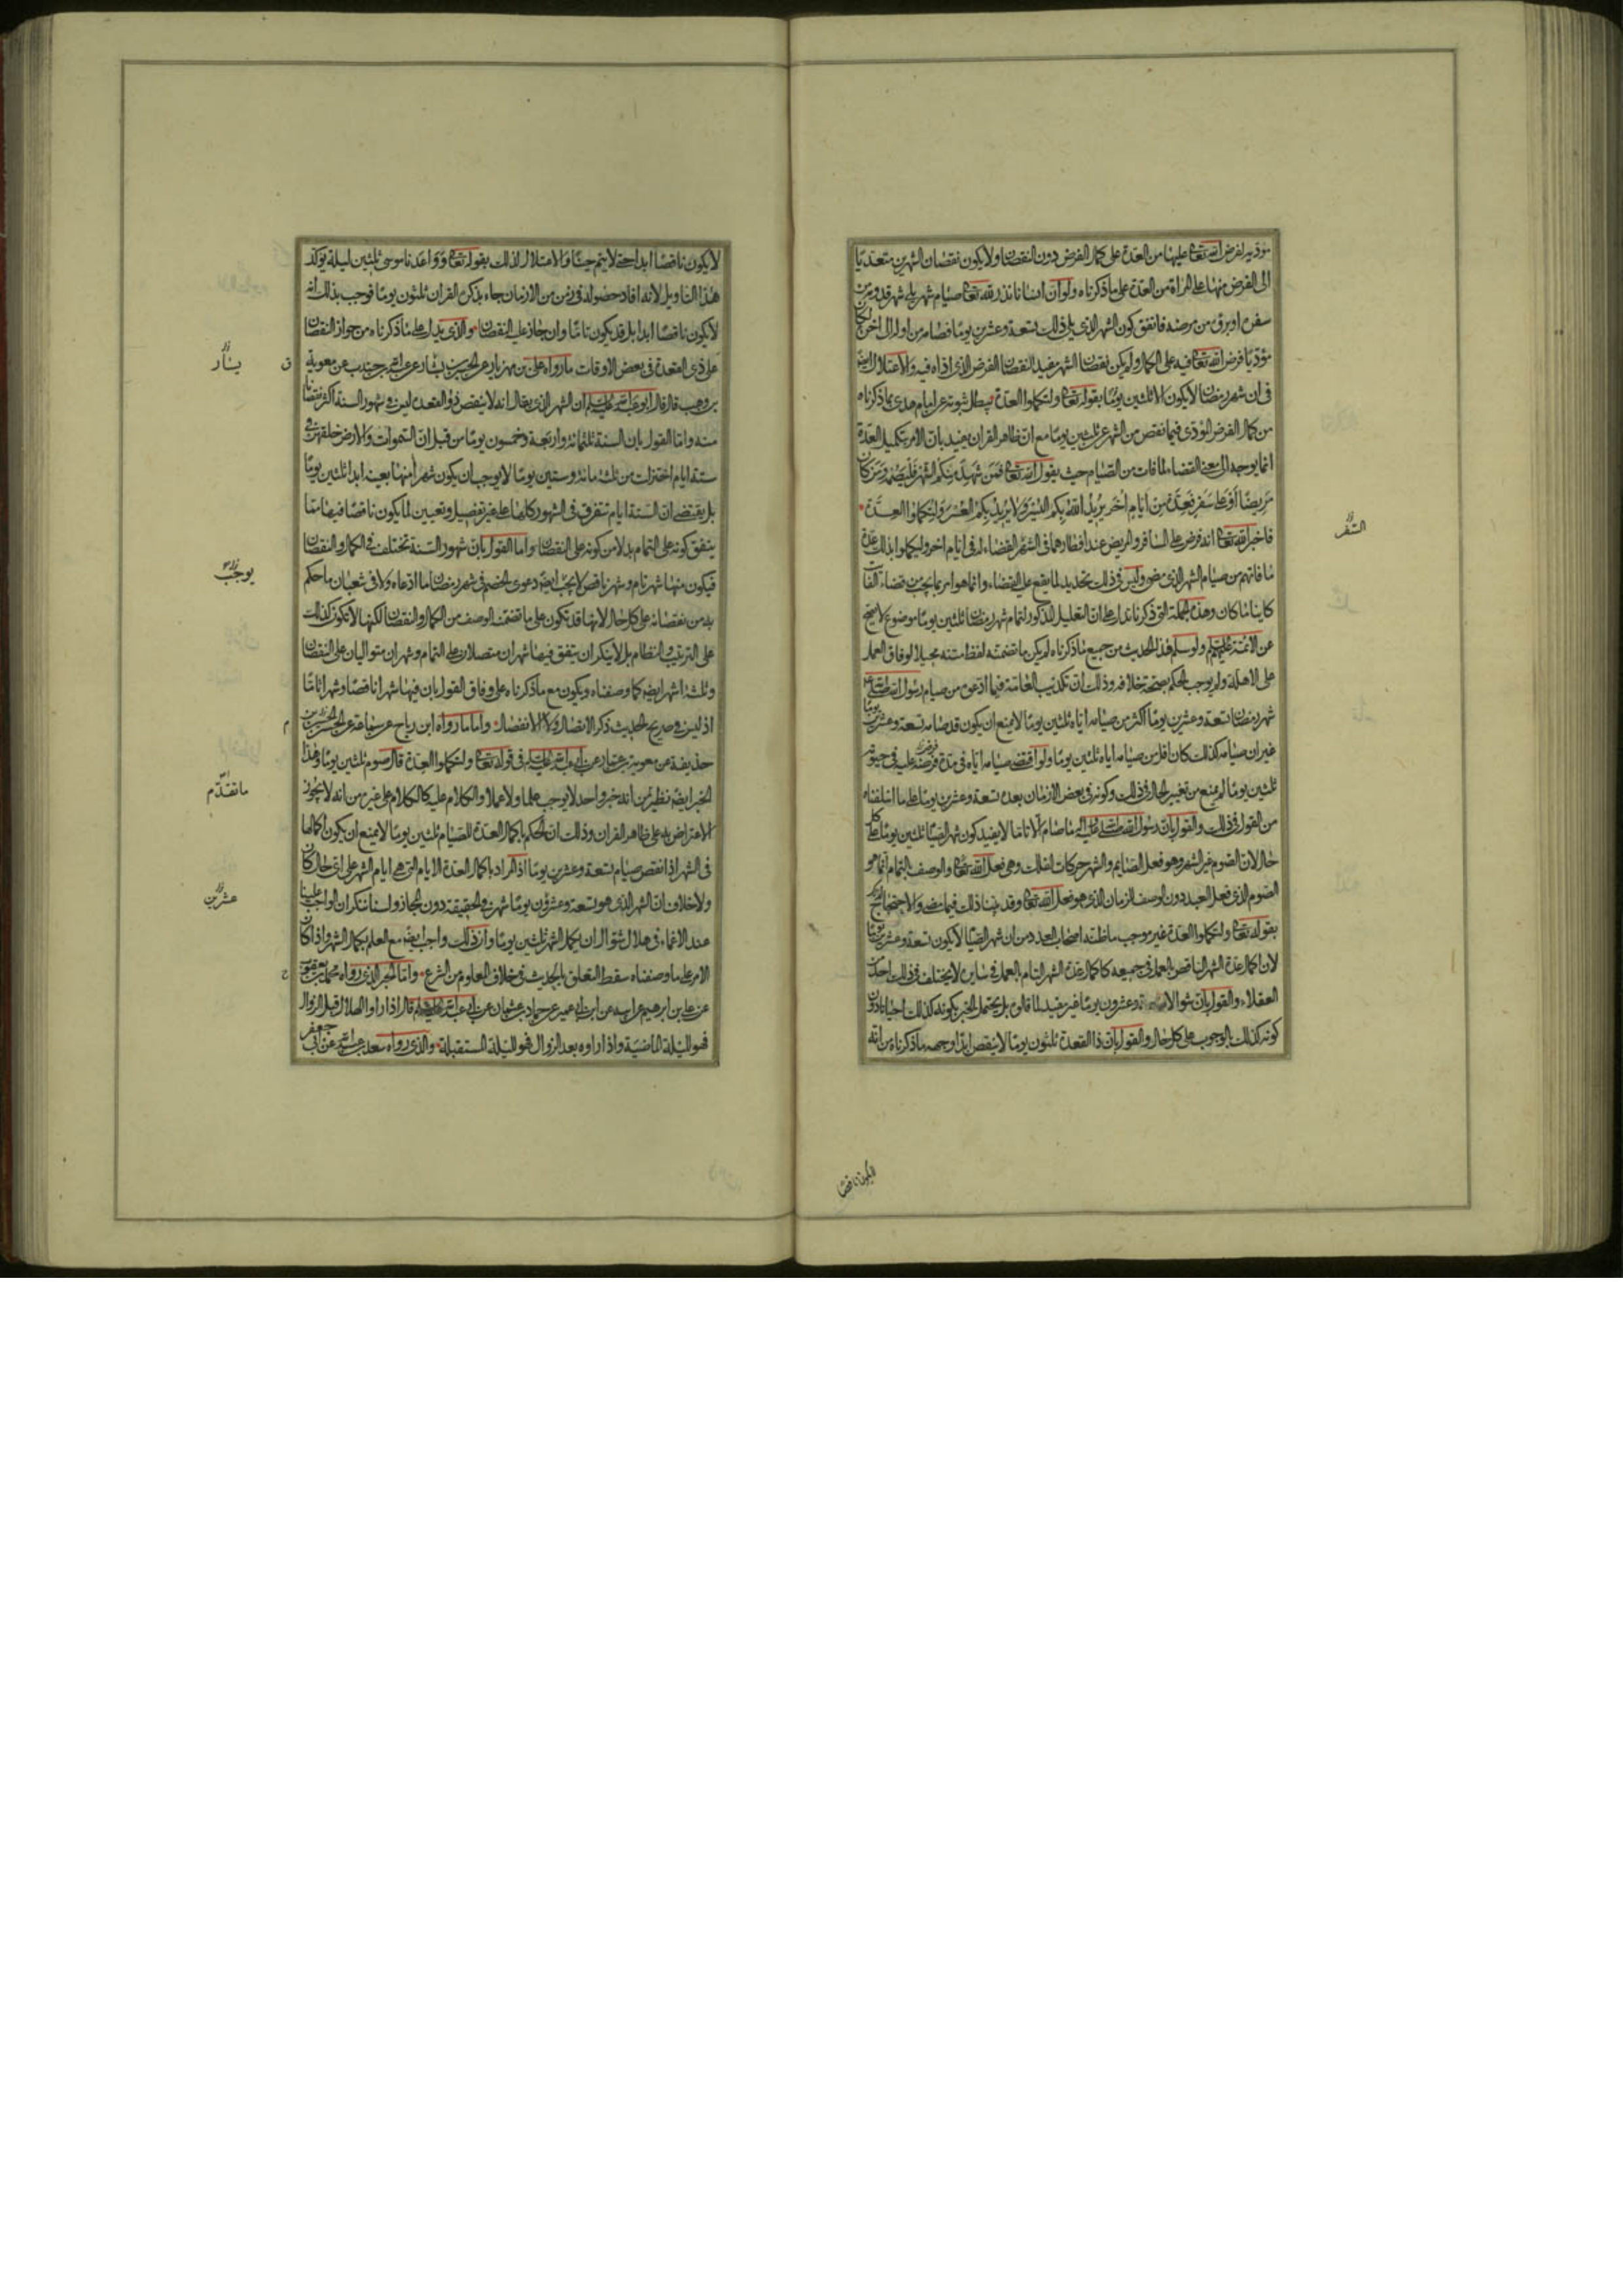 مؤدية لفرض الله تعالى عليهما من العدة على كمال الفرض دون النقصان ولا يكون نقصان الشهرين متعديا
الى الفرض منهما على المراة من العدة على ما ذكرناه ولو ان انسانا نذر لله تعالى صيام شهر يلى شهر قدومه من
سفره او برؤه من مرضه فاتفق كون الشهر الذى يلى ذلك تسعة وعشرين يوما فصامه من اوله الى اخره لكان
مؤديا فرض الله تعالى فيه على الكمال ولم يكن نقصان الشهر مفيدا لنقصان الفرض الذى اداه فيه والاعتلال ايضا
فى ان شهر رمضان لا يكون الا ثلثين يوما بقوله تعالى ولتكملوا العدة يبطل ثبوته عن امام هدى بما ذكرناه
من كمال الفرض المؤدى فيما نقص من الشهر عن ثلثين يوما مع ان ظاهر القران يفيد بان الامر بتكميل العدة
انما يوجه الى معنى القضاء لما فات من الصيام حيث يقول الله تعالى فمن شهد منكم الشهر فليصمه ومن كان
مريضا او على سفر فعدة من ايام اخر يريد الله بكم اليسر ولا يريد بكم العسر ولتكملوا العدة
فاخبر الله تعالى انه فرض على المسافر والمريض عند افطارهما فى الشهر القضاء له فى ايام اخر وليكملوا بذلك عدة
ما فاتهم من صيام الشهر الذى مضى وليس فى ذلك تحديد لما يقع عليه القضاء وانما هو امر بما يجب من قضاء الفائت
كائنا ما كان وهذه الجملة التى ذكرناها تدل على ان التعليل المذكور لتمام شهر رمضان ثلثين يوما موضوع لا يصح
عن الائمة عليهم السلام ولو سلم هذا الحديث من جميع ما ذكرناه لم يكن ما تضمنه لفظ متنه مخيلا لوفاق العمل
على الاهلة ولم يوجب الحكم بصحته خلافه وذلك ان تكذيب العامة فيما ادعوه من صيام رسول الله صلى الله عليه
شهر رمضان تسعة وعشرين يوما اكثر من صيامه اياه ثلثين يوما لا يمنع ان يكون قد صامه تسعة وعشرين يوما
غير ان صيامه كذلك كان اقل من صيامه اياه ثلثين يوما ولو اقتضى صيامه اياه فى مدة فرضه عليه فى حيوته
ثلثين يوما لم يمنع من تغيير الحال فى ذلك وكونه فى بعض الازمان بعده تسعة وعشرين يوما على ما اسلفناه
من القول فى ذلك والقول بان رسول الله صلى الله عليه واله ما صام الا تاما لا يفيد كون شهر الصيام ثلثين يوما على كل
حال لان الصوم غير الشهر وهو فعل الصايم والشهر حركات الفلك وهى فعل الله تعالى والوصف بالتمام انما هو
الصوم الذى فعل العبد دون الوصف للزمان الذى هو فعل الله تعالى وقد بينا ذلك فيما مضى والاحتجاج لذلك
بقوله تعالى ولتكملوا العدة غير موجب ما ظنه اصحاب العدد من ان شهر الصيام لا يكون تسعة وعشرين يوما
لان اكمال عدة الشهر الناقص بالعمل فى جميعه كاكمال عدة الشهر التام بالعمل فى سايره لا يختلف فى ذلك احد من
العقلاء والقول بان شوالا تسعة وعشرون يوما غير مفيد لما قالوه بل يحتمل الخبر بكونه كذلك احيانا دون
كونه كذلك بالوجوب على كل حال والقول بان ذا القعدة ثلثون يوما لا ينقص ابدا وجهه ما ذكرناه من انه
السفر
لا يكون ناقصا
لا يكون ناقصا ابدا حتى لا يتم حينا والاعتلال لذلك بقوله تعالى وواعدنا موسى ثلثين ليلة يؤكد
هذا التاويل لانه افاد حصوله فى زمن من الازمان جاء بذكره القران ثلثون يوما فوجب بذلك انه
لا يكون ناقصا ابدا بل قد يكون تاما وان جاز عليه النقصان والذى يدل على ما ذكرناه من جواز النقصان
على ذى القعدة فى بعض الاوقات ما رواه على بن مهزيار عن الحسين بن بشار عن عبد الله بن جندب عن معوية
بن وهب قال قال ابو عبد الله عليه السلام ان الشهر الذى يقال انه لا ينقص ذو القعدة ليس فى شهور السنة اكثر نقصانا
منه واما القول بان السنة ثلثمائة واربعة وخمسون يوما من قبل ان السموات والارض خلقهن فى
ستة ايام اختزلت من ثلث مائة وستين يوما لا يوجب ان يكون شهرا منها بعينه ابدا ثلثين يوما
بل يقتضى ان الستة ايام تتفرق فى الشهور كلها على غير تفصيل وتعيين لما يكون ناقصا فيها مما
يتفق كونه على التمام بدلا من كونه على النقصان واما القول بان شهور السنة تختلف فى الكمال والنقصان
فيكون منها شهر تام وشهر ناقص لا يجب ايضا دعوى الخصم فى شهر رمضان ما ادعاه ولا فى شعبان ما حكم
به من نقصانه على كل حال لانها قد تكون على ما تضمنه الوصف من الكمال والنقصان لكنها لا تكون كذلك
على الترتيب والنظام بل لا ينكر ان يتفق فيها شهران متصلان على التمام وشهران متواليان على النقصان
وثلثة اشهر ايضا كما وصفناه ويكون مع ما ذكرناه على وفاق القول بان فيها شهرا ناقصا وشهرا تاما
اذ ليس فى صريح الحديث ذكر الاتصال ولا الانفصال واما ما رواه ابن رباح عن سماعة عن الحسن بن
حذيفة عن معوية بن عمار عن ابى عبد الله عليه السلام فى قوله تعالى ولتكملوا العدة قال صوم ثلثين يوما وهذا
الخبر ايضا نظير من انه خبر واحد لا يوجب علما ولا عملا والكلام عليه كالكلام على غيره من انه لا يجوز
الاعتراض به على ظاهر القران وذلك ان الحكم باكمال العدة للصيام ثلثين يوما لا يمنع ان يكون اكمالها
فى الشهر اذا نقص صيام تسعة وعشرين يوما اذ المراد باكمال العدة الايام التى هى ايام الشهر على اى حال كان
ولا خلاف ان الشهر الذى هو تسعة وعشرون يوما شهر فى الحقيقة دون المجاز ولسنا ننكر ان الواجب علينا
عند الاغماء فى هلال شوال ان يكمل الشهر ثلثين يوما وان ذلك واجب ايضا مع العلم بكمال الشهر واذا كان
الامر على ما وصفناه سقط التعلق بالحديث فى خلاف المعلوم من الشرع واما الخبر الذى رواه محمد بن يعقوب
عن على بن ابرهيم عن ابيه عن ابن ابى عمير عن حماد بن عثمان عن ابى عبد الله عليه السلام قال اذا راوا الهلال قبل الزوال
فهو لليلة الماضية واذا راوه بعد الزوال فهو لليلة المستقبلة والذى رواه سعد بن عبد الله عن ابى جعفر
يسار
ق
يوجب
م
ما تقدم
عشرين
ح